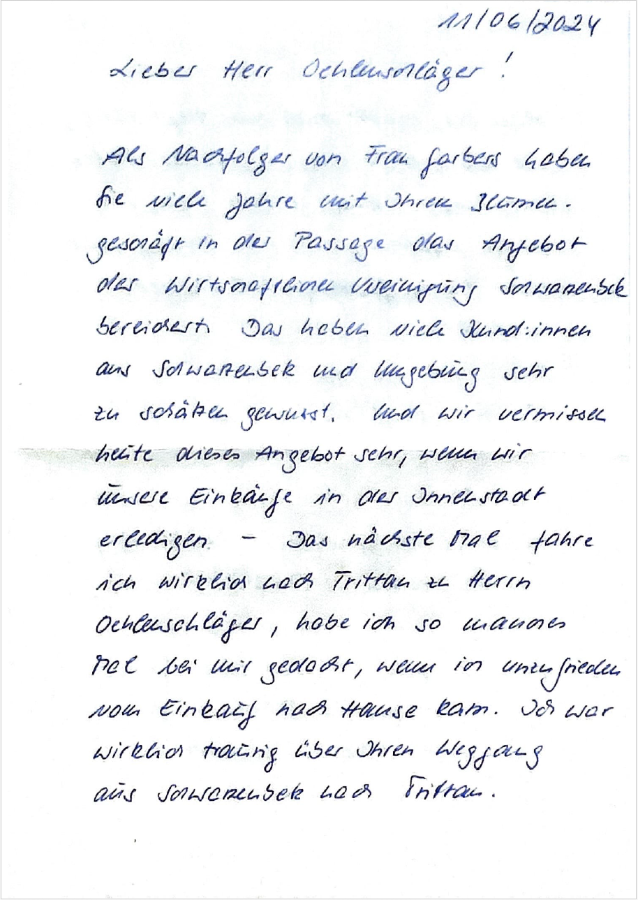 11/06/2024
Lieber Herr Oehlenschläger!
Als Nachfolger von Frau Garbers haben
Sie viele Jahre mit Ihrem Blumen-
geschäft in der Passage das Angebot
der Wirtschaftlichen Vereinigung Schwarzenbek
bereichert. Das haben viele Kund:innen
aus Schwarzenbek und Umgebung sehr
zu schätzen gewusst. Und wir vermissen
heute dieses Angebot sehr, wenn wir
unsere Einkäufe in der Innenstadt
erledigen – Das nächste Mal fahre
ich wirklich nach Trittau zu Herrn
Oehlenschläger, habe ich so manches
Mal bei mir gedacht, wenn ich unzufrieden
vom Einkauf nach Hause kam. Ich war
wirklich traurig über Ihren Weggang
aus Schwarzenbek nach Trittau.